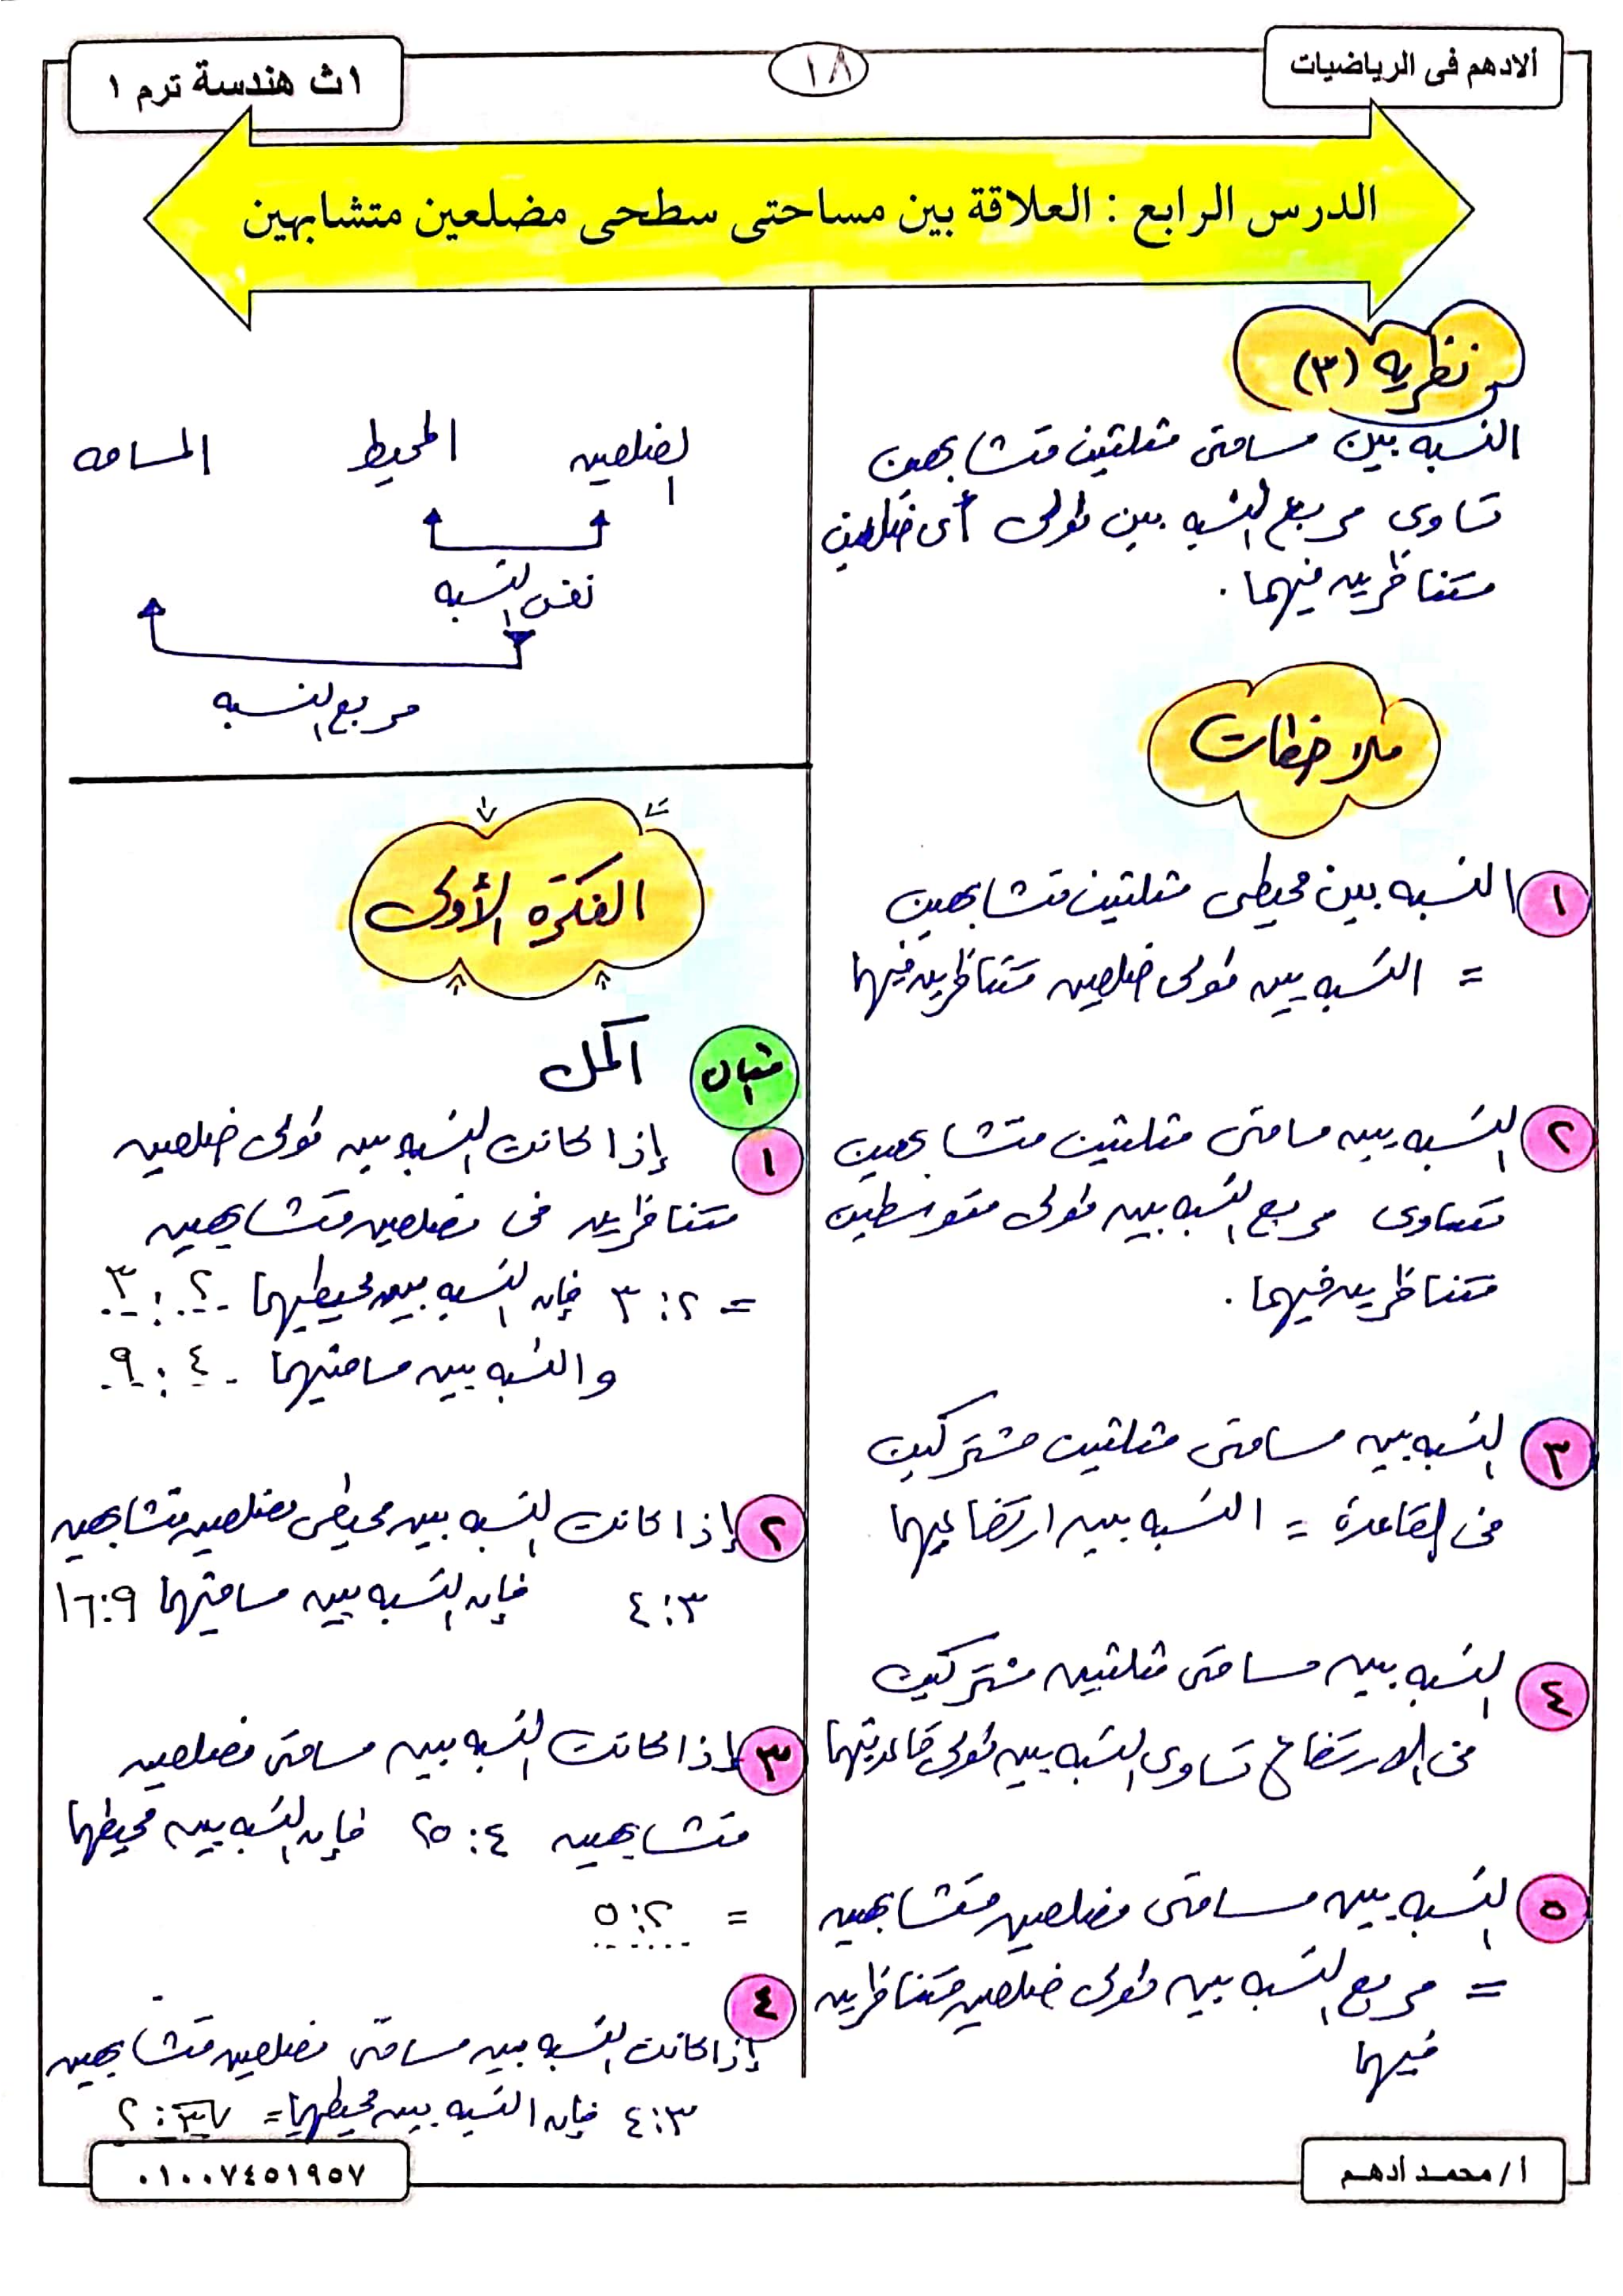 ألادهم فى الرياضيات
١٨
١ث هندسة ترم ١
الدرس الرابع : العلاقة بين مساحتى سطحى مضلعين متشابهين
نظريه (٣)
النسبه بين مساحتى مثلثين متشابهين
تساوى مربع النسبه بين طولى أى ضلعين
متناظرين فيهما .
ملاحظات
١ النسبه بين محيطى مثلثين متشابهين
= النسبه بين طولى ضلعين متناظرين فيهما
٢ النسبه بين مساحتى مثلثين متشابهين
تساوى مربع النسبه بين طولى متوسطين
متناظرين فيهما .
٣ النسبه بين مساحتى مثلثين مشتركين
فى القاعدة = النسبه بين ارتفاعيهما
٤ النسبه بين مساحتى مثلثين مشتركين
فى الارتفاع تساوى النسبه بين طولى قاعدتيهما
٥ النسبه بين مساحتى مضلعين متشابهين
= مربع النسبه بين طولى ضلعين متناظرين
فيهما
الضلعين المحيط المساحه
نفس النسبه
مربع النسبه
الفكرة الأولى
مثال اكمل
١ إذا كانت النسبه بين طولى ضلعين
متناظرين فى مضلعين متشابهين
= ٢ : ٣ فإن النسبه بين محيطيهما ٢ : ٣
والنسبه بين مساحتيهما ٤ : ٩
٢ إذا كانت النسبه بين محيطى مضلعين متشابهين
٣ : ٤ فإن النسبه بين مساحتيهما ٩ : ١٦
٣ إذا كانت النسبه بين مساحتى مضلعين
متشابهين ٤ : ٢٥ فإن النسبه بين محيطهما
= ٢ : ٥
٤
إذا كانت النسبه بين مساحتى مضلعين متشابهين
٣ : ٤ فإن النسبه بين محيطهما = √٣ : ٢
أ / محمد أدهم
٠١٠٠٧٤٥١٩٥٧